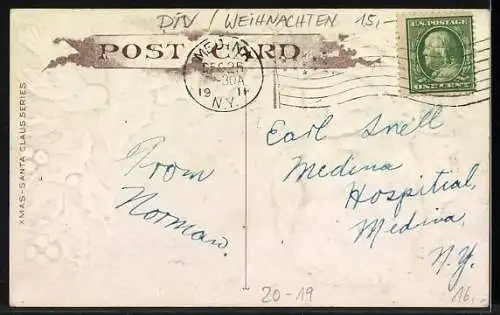 DIV / WEIHNACHTEN 15,-
POST CARD
U.S. POSTAGE
ONE CENT
MEDINA
DEC 25
30A
19 11
N.Y.
XMAS-SANTA CLAUS SERIES
From
Norman.
Earl Snell
Medina
Hospitial,
Medina,
N.Y.
20-19
16.-